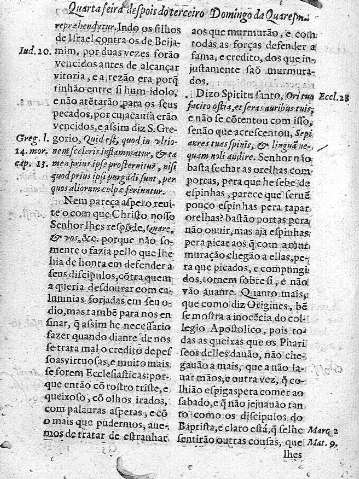 Quarta feira despois do terceiro Domingo da Quaresm
reprehendẽtur. Indo os filhos
de Israel contra os de Beija-
mim, por duas vezes forão
vencidos antes de alcançar
vitoria, e a rezão era porq̃
tinhão entre si hum idolo,
e não atẽtarão, para os seus
pecados, por cuja causa erão
vencidos, e assim diz S. Gre-
gorio, Quid est, quod in ultio-
nem sceleris inflammatur, & ta
men prius ipse prosternitur, nisi
quod prius ipsi purgãdi sunt, per
quos aliorum culpæ feriuntur.
Nem pareça aspero revi-
te o com que Christo nosso
Senhor lhes respõde, Quare,
& vos, &c. porque não so-
mente o fazia pello que lhe
hia de honta em defender a
seus discipulos, cõtra quem
a queria desdourar com ca-
lumnias forjadas em seu o-
dio, mas tambẽ para nos en-
sinar, q̃ assim he necessario
fazer quando diante de nos
se trata mal o credito de pes-
soas virtuosas, e muito mais
se forem Ecclesiasticas: por-
que então cõ rostro triste, e
queixoso, cõ olhos irados,
com palauras asperas, e cõ
o mais que pudermos, aue-
mos de tratar de estranhar
Iud. 20.
Greg. l.
14. mor.
cap. 13.
aos que murmurão, e com
todas as forças defender a
fama, e credito, dos que in-
justamente saõ murmura-
dos.
Dizo Spirito santo, Ori tuo
facito ostia, et seras auribus tuis;
e não se cõtentou com isso,
senão que acrescentou, Sepi
aures tuas spinis, & linguã ne-
quam noli audire. Senhor não
basta fechar as orelhas com
portas, pera que he sebe de
espinhas, parece que serue
pouco espinhas pera tapar
orelhas? bastão portas pera
não ouuir, mas aja espinhas
pera picar aos q̃ com a mur-
muração chegão a ellas, pe-
ra que picados, e compungi-
dos, tornem sobre si, e não
vão áuante. Quanto mais,
que como diz Origines, bẽ
se mostra a inocẽcia do col-
legio Apostolico, pois to-
das as queixas que os Phari
seos delles dauão, não che-
gauão a mais, que a não la-
uar mãos, e outra vez, q̃ co-
lhião espigas pera comer ao
sabbado, e q̃ não jejuauão tan
to como os discipulos do
Baptista, e claro está, q̃ se lhe
sentirão outras cousas, que
lhes
Eccl. 28
Marc. 2
Mat. 9.